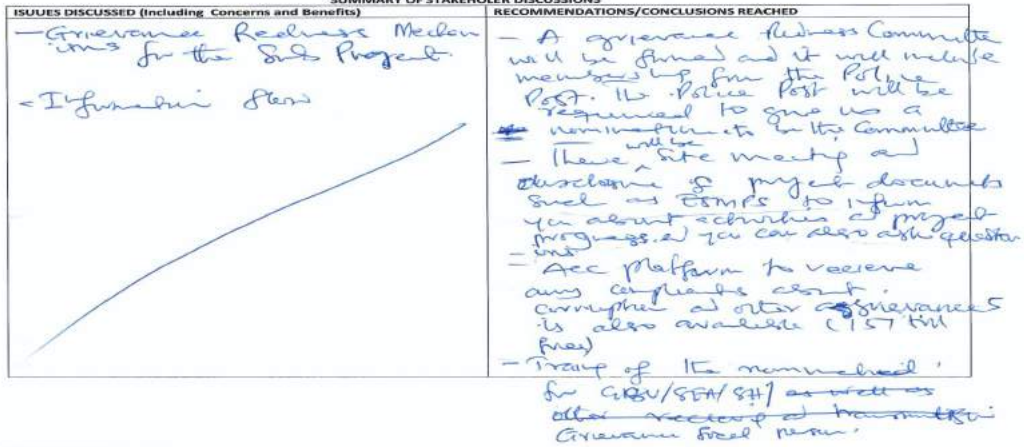 SUMMARY OF STAKEHOLER DISCUSSIONS
ISUUES DISCUSSED (Including Concerns and Benefits)
- Grievance Redress Mechan
isms for the Sub Project.
- Information flow
RECOMMENDATIONS/CONCLUSIONS REACHED
- A grievance Redress Committe
will be formed and it will include
membership from the Police
Post. The Police Post will be
required to give us a
to the Committee
- There will be site meeting and
disclosure of project documents
such as ESMPs to inform
you about activities and project
progress. and you can also ask question
- Acc platform to receive
any complaints about
corruption and other grievances
is also available (157 toll
free)
- Training of the
for GBV/SEA/SH/ as well as
other
Grievance focal person.